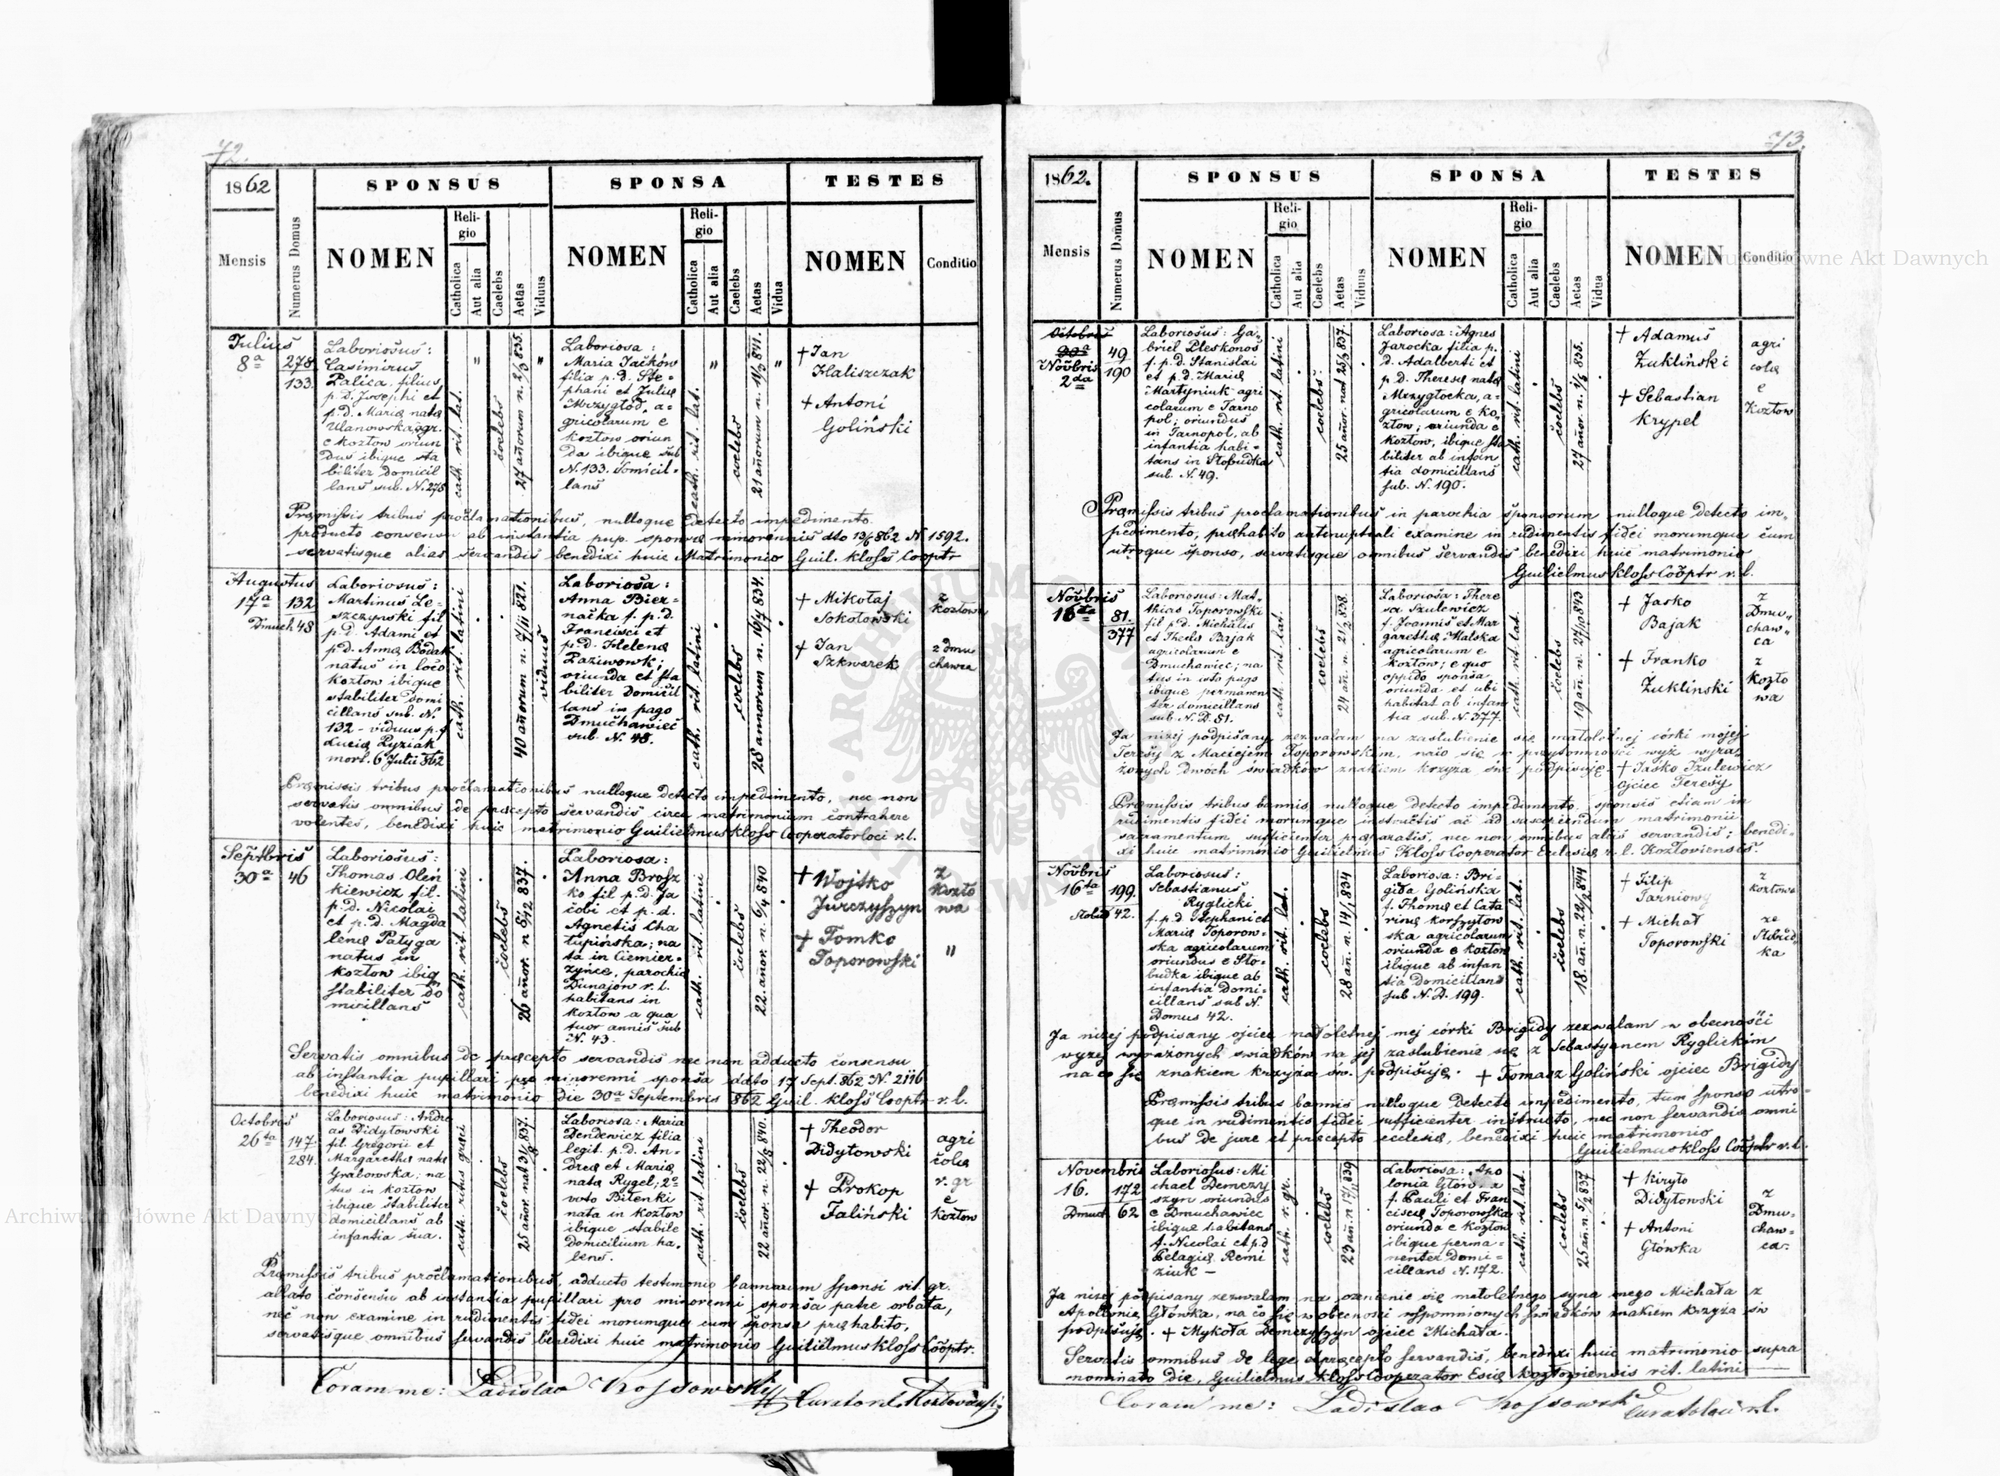 72.
1862
Numerus Domus
SPONSUS
SPONSA
TESTES
Mensis
NOMEN
Religio
Catholica
Aut alia
Caelebs
Aetas
Viduus
NOMEN
Religio
Catholica
Aut alia
Caelebs
Aetas
Vidua
NOMEN
Conditio
Julius
8a
278
133.
Laboriosus:
Casimirus
Palica, filius
p. d. Josephi et
p. d. Mariæ natæ
Ulanowska, agr.
e Kozłow oriun
dus ibique sta
biliter domicil
lans sub. N. 278
cath. rit. lat.
"
coelebs
27 añorum n. 2/3 835.
"
Laboriosa:
Maria Jačków
filia p. d. Ste-
phani et Juliæ
Mrzygłod, a-
gricolarum e
Kozłow oriun
da ibique sub
N. 133. domicil-
lans
cath. rit. lat.
"
coelebs
21 añorum n. 11/3 841.
"
+ Jan
Haliszczak
+ Antoni
Goliński
Præmissis tribus proclamationibus, nulloque detecto impedimento
producto consensu ab instantia pup. sponsæ minorennis dto 13/6 862 N 1592.
servatisque alias servandis benedixi huic Matrimonio Guil. Kloss Cooptr
Augustus
17a
132
Dmuch 48
Laboriosus:
Martinus Le-
szczynski fil
p. d. Adami et
p. d. Annæ Bodak
natus in loco
Kozłow ibique
stabiliter domi
cillans sub. N.
132 - viduus p. f
Lucia Pyziak
mort. 6 Julii 862
cath. rit. latini
40 añorum n. 7/11 821.
viduus
Laboriosa:
Anna Bier-
načka f. p. d.
Francisci et
p. d. Helenæ
Paziwowk;
oriunda et sta
biliter domicil
lans in pago
Dmuchawiec
sub. N. 48.
cath. rit. latini
coelebs
28 annorum n. 16/7 834.
+ Mikołaj
Sokołowski
z
Kozłowa
+ Jan
Szkwarek
z dmu
chawca
Præmissis tribus proclamationibus nulloque detecto impedimento, nec non
servatis omnibus de præcepto servandis circa matrimonium contrahere
volentes, benedixi huic matrimonio Guilielmus Kloss Cooperator loci r. l.
Septbris
30a
46
Laboriosus:
Thomas Oleń
kiewicz fil.
p. d. Nicolai
et p. d. Magda
lenæ Patyga
natus in
Kozłow ibiq
stabiliter do
micillans
cath. rit. latini
coelebs
26 añor. n. 6/12 837.
Laboriosa:
Anna Brosz
ko fil p. d. Ja
cobi et p. d.
Agnetis Cha
łupińska; na
ta in Ciemier-
zyńce, parochia
Dunajow r. l.
habitans in
Kozłow a qua
tuor annis sub
N. 43.
cath. rit. latini
coelebs
22. añor. n. 6/4 840
+ Wojtko
Jurczyszyn
z
Kozło
wa
+ Tomko
Toporowski
"
Servatis omnibus de præcepto servandis nec non adducto consensu
ab instantia pupillari pro minorenni sponsa ddto 17 Sept. 862 N. 2116
benedixi huic matrimonio die 30a Septembris 862 Guil. Kloss Cooptr r. l.
Octobris
26ta
147.
284.
Laboriosus: Andre
as Didyłowski
fil. Gregorii et
Margarethæ natæ
Grabowska; na
tus in Kozłow
ibique stabiliter
domicillans ab
infantia sua.
cath. ritus græci
coelebs
25 añor nat 31/8 837.
Laboriosa: Maria
Dendewicz filia
legit. p. d. An-
dreæ et Mariæ
natæ Rygel; 2o
voto Bilenki
nata in Kozłow
ibique stabile
domicilium ha-
bens.
cath. rit latini
coelebs
22 añor. n. 22/8 840.
+ Theodor
Didyłowski
+ Prokop
Faliński
agri
colæ
r. gr
e
Kozłow
Præmissis tribus proclamationibus, adducto testimonio bannarum sponsi rit. gr.
allato consensu ab instantia pupillari pro minorenni sponsa patre orbata,
nec non examine in rudimentis fidei morumque cum sponsa præhabito,
servatisque omnibus servandis benedixi huic matrimonio Guilielmus Kloss Cooptr.
Coram me: Ladislao Kossowski Curatore l. Kozłoviensi
73.
1862.
Numerus Domus
SPONSUS
SPONSA
TESTES
Mensis
NOMEN
Religio
Catholica
Aut alia
Caelebs
Aetas
Viduus
NOMEN
Religio
Catholica
Aut alia
Caelebs
Aetas
Vidua
NOMEN
Conditio
Octobris
30a
Novbris
2da
49
190
Laboriosus: Ga-
briel Pleskonos
f. p. d. Stanislai
et p. d. Mariæ
Martyniuk agri
colarum e Tarno
pol; oriundus
in Tarnopol, ab
infantia habi
tans in Słobudka
sub. N. 49.
cath. rit. latini
coelebs
25 añor. nat 25/3 837.
Laboriosa: Agnes
Jarocka filia p.
d. Adalberti et
p. d. Theresæ natæ
Mrzygłocka, a-
gricolarum e Ko-
złow; oriunda e
Kozłow, ibique sta
biliter ab infan
tia domicillans
sub. N. 190.
cath. rit. latini
coelebs
27 añor. n. 1/6 835.
+ Adamus
Żukliński
+ Sebastian
Krypel
agri
colæ
e
Kozłow
Præmissis tribus proclamationibus in parochia sponsorum nulloque detecto im-
pedimento, præhabito antenuptiali examine in rudimentis fidei morumque cum
utroque sponso, servatisque omnibus servandis benedixi huic matrimonio
Guilielmus Kloss Cooptr r. l.
Novbris
16ta
81.
377
Laboriosus: Mat-
thias Toporowski
fil p. d. Michælis
et Theclæ Bajak
agricolarum e
Dmuchawiec; na
tus in isto pago
ibique permanen
ter domicillans
sub. N. D. 81.
cath. rit. lat.
coelebs
24 añ. n. 21/2 838.
Laboriosa: There
sa Szulewicz
f. Joannis et Mar
garethæ Malska
agricolarum e
Kozłow; e quo
oppido sponsa
oriunda et ubi
habitat ab infan
tia sub. N. 377.
cath. rit. lat.
coelebs
19 añ. n. 27/10 843
+ Jasko
Bajak
z
Dmu-
chaw-
ca
+ Franko
Żukliński
z
Kozło
wa
Ja niżej podpisany zezwalam na zaslubienie się małoletnej córki mojej
Teresy z Maciejem Toporowskim, naco się w przytomności wyż wyra-
żonych dwóch świadków znakiem krzyża św. podpisuję. + Jaśko Szulewicz
ojciec Teresy
Præmissis tribus bannis nulloque detecto impedimento, sponsis etiam in
rudimentis fidei morumque instructis ac ad suscipiendum matrimonii
sacramentum sufficienter præparatis, nec non omnibus aliis servandis; benedi-
xi huic matrimonio Guilielmus Kloss Cooperator Ecclesiæ r. l. Kozłoviensis.
Novbris
16ta
199.
Słobd 42.
Laboriosus:
Sebastianus
Ryglicki
f. p. d. Stephani et
Mariæ Toporow-
ska agricolarum
oriundus e Sło-
budka ibique ab
infantia domi-
cillans sub N.
Domus 42.
cath. rit. lat.
coelebs
28 añ. n. 14/1 834
Laboriosa: Bri-
gida Golińska
f. Thomæ et Cata
rinæ Korszyłow
ska, agricolarum
oriunda e Kozłow
ibique ab infan
tia domicillans
sub N. D. 199.
cath. rit. lat.
coelebs
18 añ. n. 24/2 844
+ Filip
Tarniowy
z
Kozłowa
+ Michał
Toporowski
ze
Słobód
ka
Ja niżej podpisany ojciec małoletnej mej córki Brigidy zezwalam w obecności
wyżej wyrażonych swiadków na jej zaslubienie się z Sebastyanem Ryglickim
na co się znakiem krzyża św. podpisuję. + Tomasz Goliński ojciec Brigidy
Præmissis tribus bannis nulloque detecto impedimento, tum sponso utro-
que in rudimentis fidei sufficienter instructo, nec non servandis omni
bus de jure et præcepto ecclesiæ, benedixi huic matrimonio
Guilielmus Kloss Cooptr r. l.
Novembris
16.
172
Dmuch 62
Laboriosus: Mi
chael Demczy
szyn oriundus
e Dmuchawiec
ibique habitans
f. Nicolai et p. d
Pelagiæ Remi
ziuk -
cath. r. gr.
coelebs
23 añ n. 17/11 839
Laboriosa: Apo
lonia Głów-
ka
f. Pauli et Fran
ciscæ Toporowska
oriunda e Kozłow
ibique perma-
nenter domi-
cillans N. 172.
cath. rit. lat.
coelebs
25 añ. n. 5/2 837
+ Kiryło
Didyłowski
+ Antoni
Główka
z
Dmu-
chaw-
ca.
Ja niżej podpisany zezwalam na ożenienie się małoletnego syna mego Michała z
Apollonią Główka, na co się w obecności wspomnionych świadków znakiem krzyża św
podpisuję. + Mykoła Demczyszyn ojciec Michała.
Servatis omnibus de lege et præcepto servandis, benedixi huic matrimonio supra
nominato die, Guilielmus Kloss Cooperator Esiæ Kozłowiensis rit. latini
Coram me: Ladislao Kossowski Curato loci r. l.
Archiwum Główne Akt Dawnych
Archiwum Główne Akt Dawnych